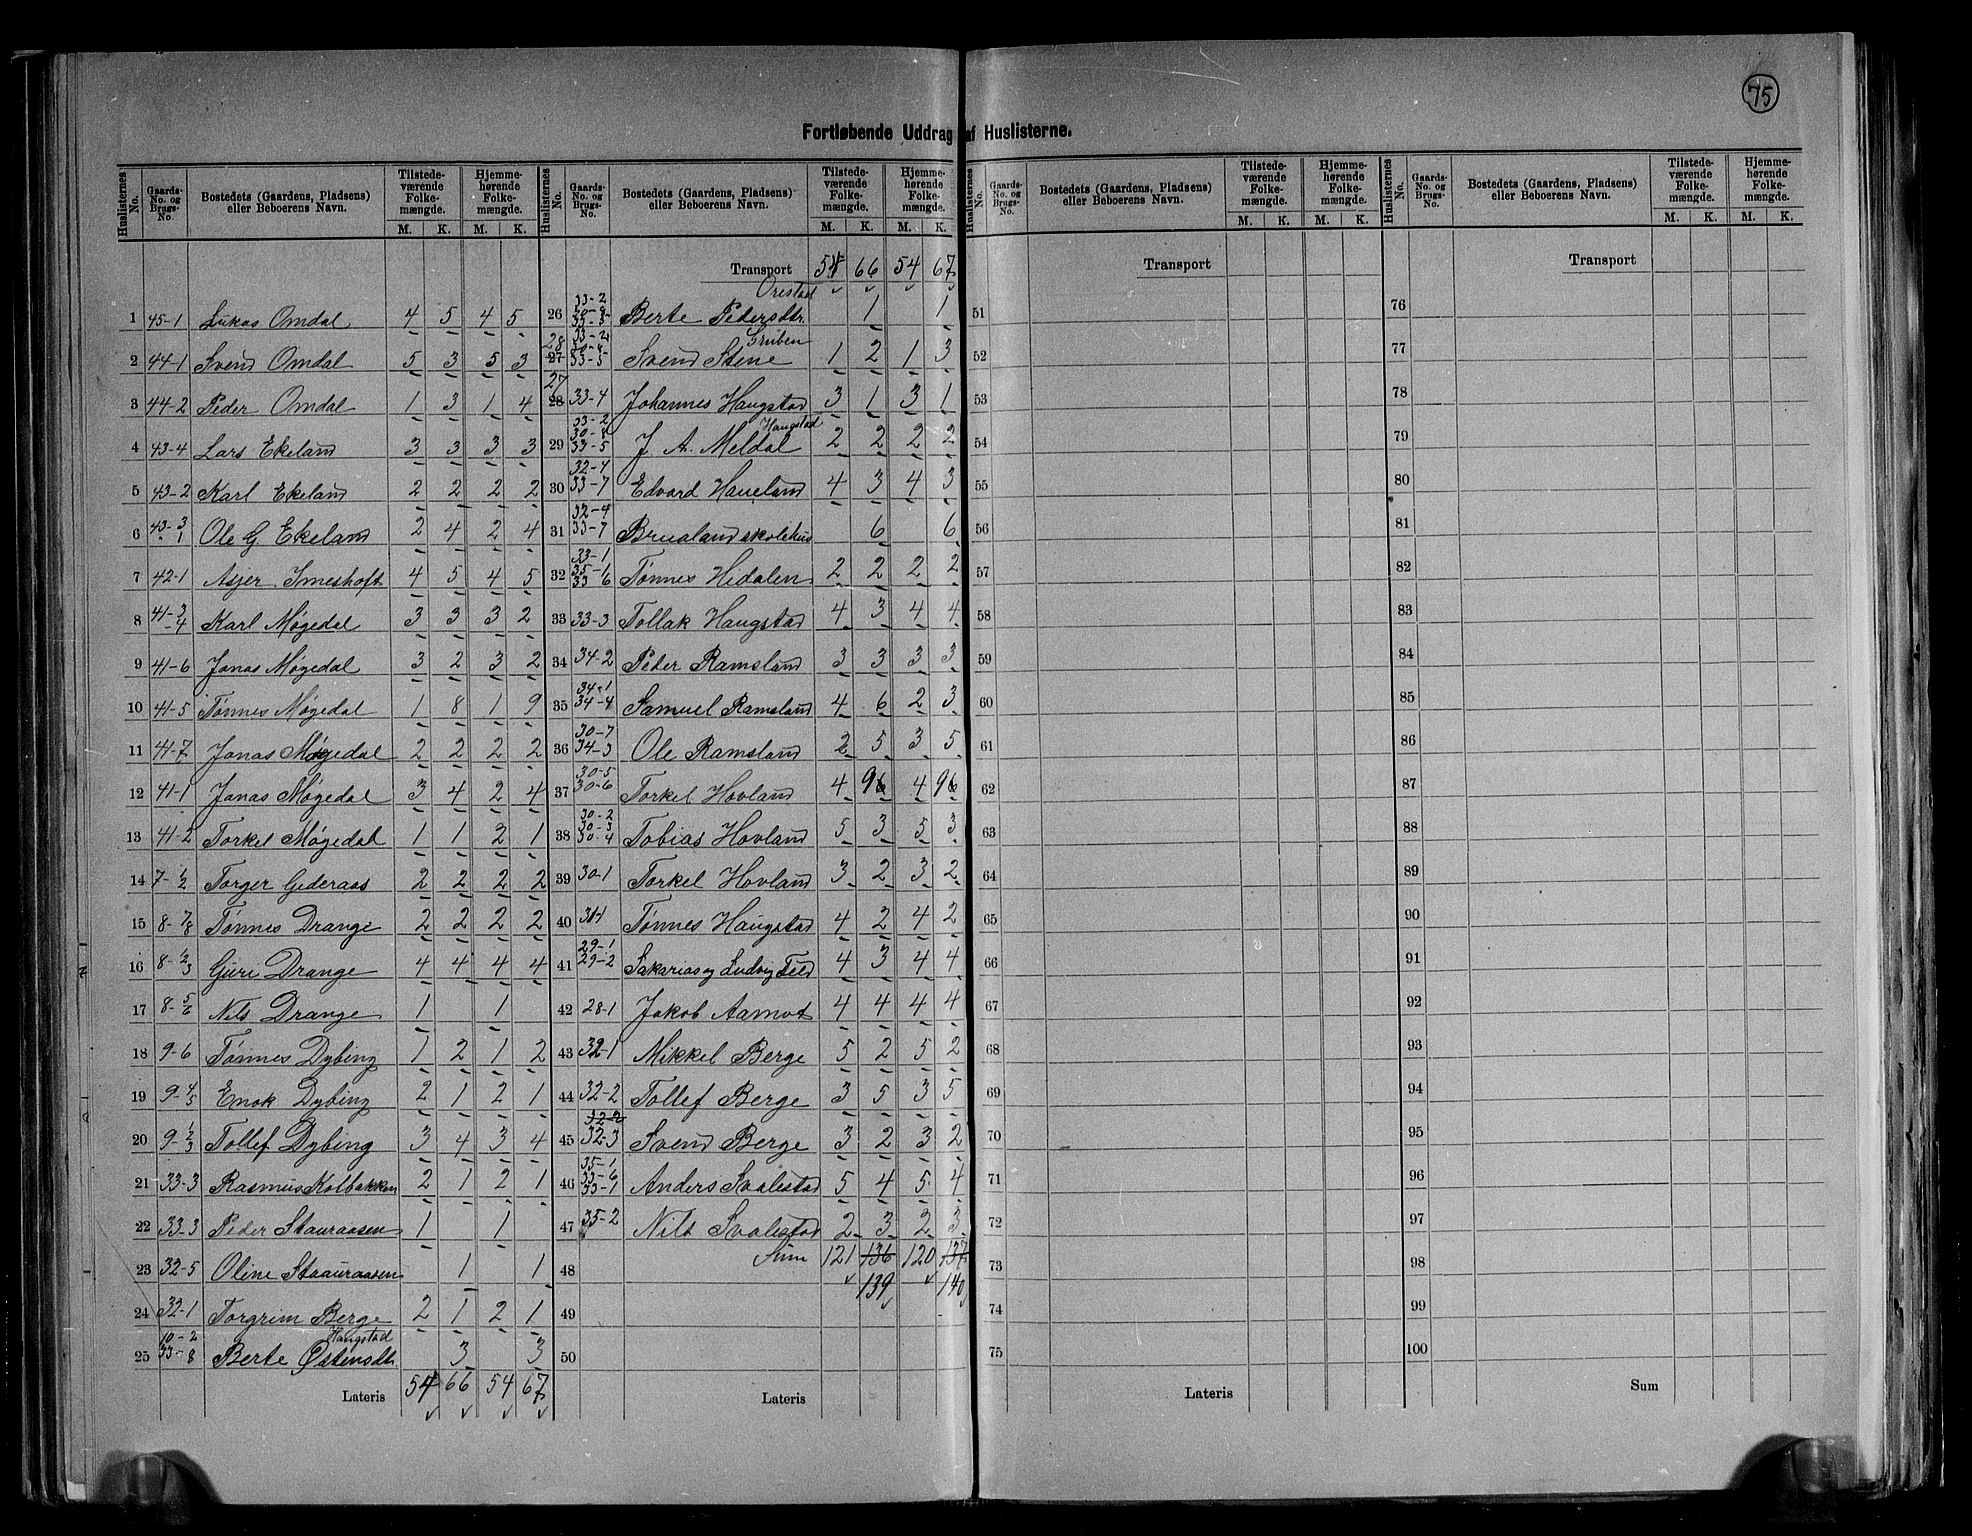 75
Fortløbende Uddrag af Huslisterne.
Huslisternes No. Gaards-No. og Brugs-No. Bostedets (Gaardens, Pladsens) eller Beboerens Navn. Tilstede-værende Folke-mængde. M. K. Hjemme-hørende Folke-mængde. M. K.
1 45-1 Lukas Omdal 4 5 4 5
2 44-1 Svend Omdal 5 3 5 3
3 44-2 Peder Omdal 1 3 1 4
4 43-4 Lars Ekeland 3 3 3 3
5 43-2 Karl Ekeland 2 2 2 2
6 43-3 1 Ole G. Ekeland 2 4 2 4
7 42-1 Asjer Imeshoft 4 5 4 5
8 41-3 -4 Karl Møgedal 3 3 3 2
9 41-6 Jonas Møgedal 3 2 3 2
10 41-5 Tønnes Møgedal 1 8 1 9
11 41-7 Jonas Møgedal 2 2 2 2
12 41-1 Jonas Møgedal 3 4 2 4
13 41-2 Torkel Møgedal 1 1 2 1
14 7-1/2 Torger Gideraas 2 2 2 2
15 8-7/8 Tønnes Drange 2 2 2 2
16 8-2/3 Guri Drange 4 4 4 4
17 8-5/6 Nils Drange 1 1
18 9-6 Tønnes Dybing 1 2 1 2
19 9-4/5 Enok Dybing 2 1 2 1
20 9-1/2/3 Tollef Dybing 3 4 3 4
21 33-3 Rasmus Kolbakken 2 1 2 1
22 33-3 Peder Stauraasen 1 1
23 32-5 Oline Staauraasen 1 1
24 32-1 Torgrim Berge 2 1 2 1
25 10-2 33-8 Berte Østensdt. Haugstad 3 3
Lateris 54 66 54 67
Huslisternes No. Gaards-No. og Brugs-No. Bostedets (Gaardens, Pladsens) eller Beboerens Navn. Tilstede-værende Folke-mængde. M. K. Hjemme-hørende Folke-mængde. M. K.
Transport 54 66 54 67
26 33-2 33-3 Berte Pedersdtr. Orestad 1 1
28 27 33-2 33-5 Svend Stene Gruben 1 2 1 3
27 28 33-4 Johannes Haugstad 3 1 3 1
29 33-2 30-8 33-5 J. A. Meldal Haugstad 2 2 2 2
30 32-4 33-7 Edvard Haueland 4 3 4 3
31 32-4 33-7 Brualand skolehus 6 6
32 33-1 35-1 33-6 Tønnes Hidalen 2 2 2 2
33 33-3 Tollak Haugstad 4 3 4 4
34 34-2 Peder Ramsland 3 3 3 3
35 34-1 34-4 Samuel Ramsland 4 6 2 3
36 30-7 34-3 Ole Ramsland 2 5 3 5
37 30-5 30-6 Torkel Hovland 4 9 6 4 9 6
38 30-2 30-3 30-4 Tobias Hovland 5 3 5 3
39 30-1 Torkel Hovland 3 2 3 2
40 31-1 Tønnes Haugstad 4 2 4 2
41 29-1 29-2 Sakarias og Ludvig Feed 4 3 4 4
42 28-1 Jakob Aamot 4 4 4 4
43 32-1 Mikkel Berge 5 2 5 2
44 32-2 Tollef Berge 3 5 3 5
45 32-2 32-3 Svend Berge 3 2 3 2
46 35-1 33-6 33-1 Anders Svalestad 5 4 5 4
47 35-2 Nils Svalestad 2 3 2 3
48 Sum 121 136 120 137
139 140
49
50
Lateris
Huslisternes No. Gaards-No. og Brugs-No. Bostedets (Gaardens, Pladsens) eller Beboerens Navn. Tilstede-værende Folke-mængde. M. K. Hjemme-hørende Folke-mængde. M. K.
Transport
51
52
53
54
55
56
57
58
59
60
61
62
63
64
65
66
67
68
69
70
71
72
73
74
75
Lateris
Huslisternes No. Gaards-No. og Brugs-No. Bostedets (Gaardens, Pladsens) eller Beboerens Navn. Tilstede-værende Folke-mængde. M. K. Hjemme-hørende Folke-mængde. M. K.
Transport
76
77
78
79
80
81
82
83
84
85
86
87
88
89
90
91
92
93
94
95
96
97
98
99
100
Sum